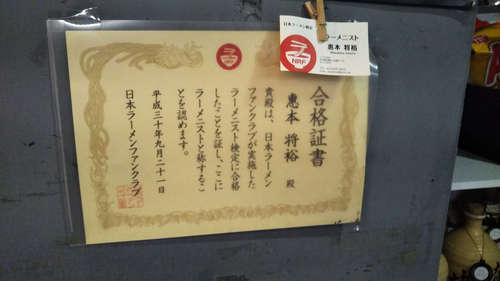 合格証書
惠本 将裕 殿
貴殿は、日本ラーメン
ファンクラブが実施した
ラーメニスト検定に合格
したことを証し、ここに
ラーメニストと称するこ
とを認めます。
平成三十年九月二十一日
日本ラーメンファンクラブ
ラーメニスト
惠本 将裕
NRF